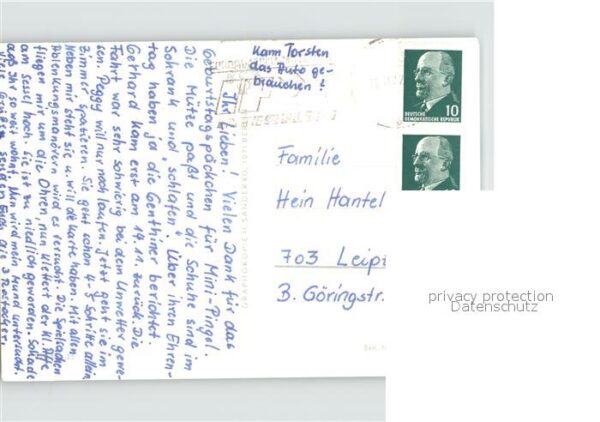 Kann Torsten
das Auto ge-
brauchen!
Ihr Lieben! Vielen Dank für das
Geburtstagspäckchen für Mini-Pingel.
Die Mütze paßt und die Schuhe sind im
Schrank und „schlafen“. Über ihren Ehren-
tag haben ja die Genthiner berichtet.
Gethard kam erst am 19.11. zurück. Die
Fahrt war sehr schwierig bei dem Unwetter gewe-
sen. Peggy will nur noch laufen. Jetzt geht sie im
Zimmer spazieren. Sie geht schon 4-5 Schritte allein
Neben mir steht sie u. will die Karte haben. Mit allen
Ablenkungsmanövern wird es versucht. Die Spielsachen
fliegen mir um die Ohren, nun klettert der kl. Affe
am Sessel hoch. Sie ist zu niedlich geworden. Schade
daß Ihr so weit wohnt. Nun wird mein Mund untersucht.
Viele Grüße senden Euch die 3 Rostocker.
10
DEUTSCHE
DEMOKRATISCHE REPUBLIK
Familie
Hein Hantel
703 Leipz
B. Göringstr.
privacy protection
Datenschutz